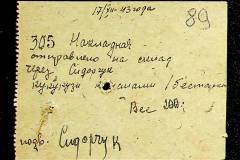 17/XII-43 года
89
305 Накладная
отправлено на склад
через Сидорчук
кукурузи качанами 1 бестарка
Вес 200
подв. Сидорчук